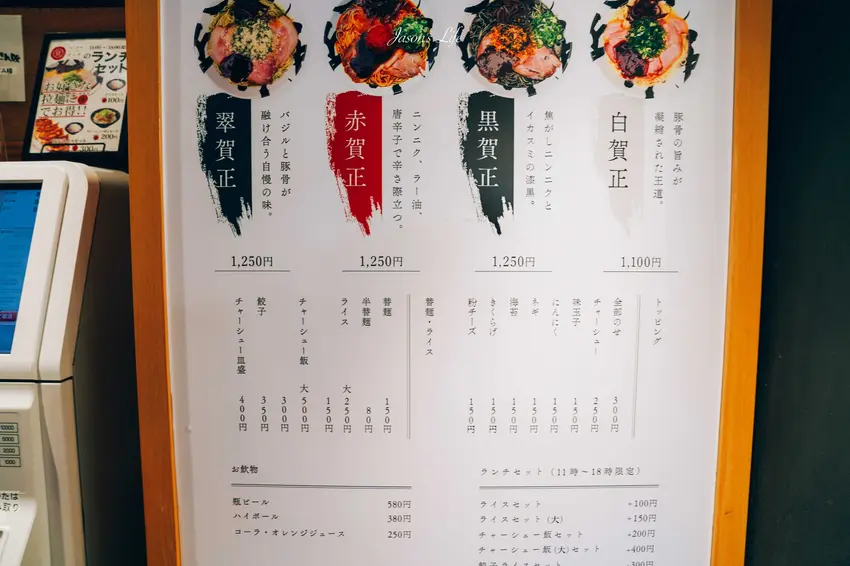 Jason's Life
ランチ
セット
お好きな
拉麺に
でお得!!
100円
200円
300円
白賀正
豚骨の旨みが
凝縮された王道。
1,100円
黒賀正
焦がしニンニクと
イカスミの漆黒。
1,250円
赤賀正
ニンニク、ラー油、
唐辛子で辛さ際立つ。
1,250円
翠賀正
バジルと豚骨が
融け合う自慢の味。
1,250円
トッピング
全部のせ 300円
チャーシュー 250円
味玉子 150円
にんにく 150円
ネギ 150円
海苔 150円
きくらげ 150円
粉チーズ 150円
替麺・ライス
替麺 150円
半替麺 80円
ライス 大 250円
150円
チャーシュー飯 大 500円
300円
餃子 350円
チャーシュー皿盛 400円
お飲物
瓶ビール 580円
ハイボール 380円
コーラ・オレンジジュース 250円
ランチセット(11時〜18時限定)
ライスセット +100円
ライスセット(大) +150円
チャーシュー飯セット +200円
チャーシュー飯(大)セット +400円
餃子ライスセット +300円
10000
5000
2000
1000